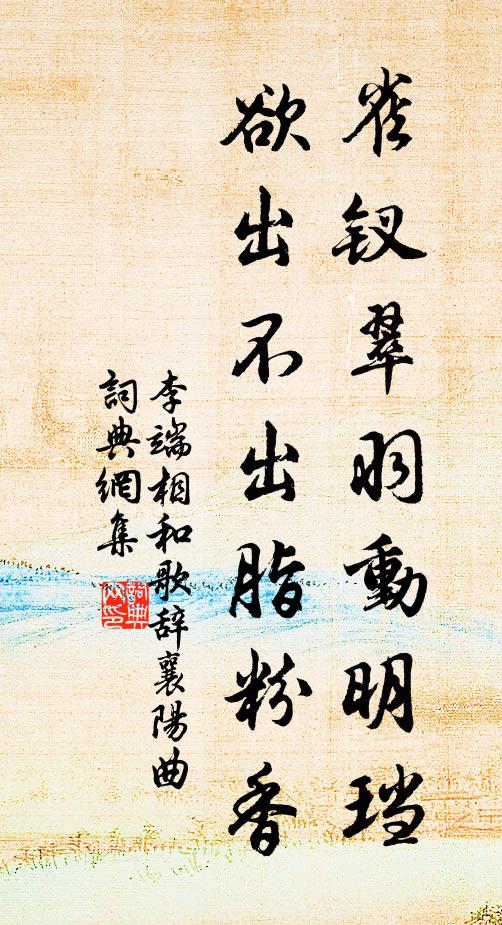 雀钗翠羽動明珰
欲出不出脂粉香
李端相和歌辞襄陽曲
詞典網集